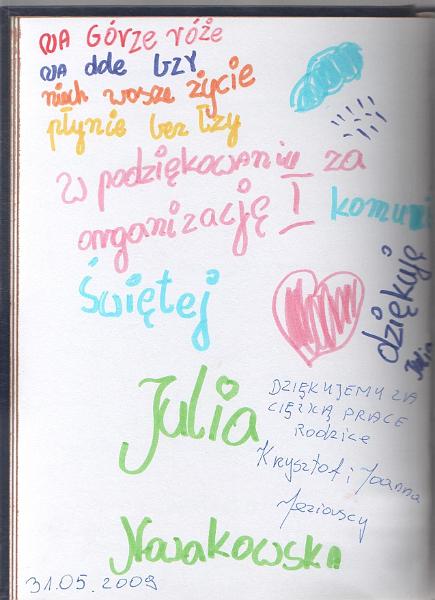 NA GÓRZE róże
NA dole BZY
niech wasze życie
płynie bez łzy
w podziękowaniu za
organizację I komuni
Świętej
dziękuję
Julia
DZIĘKUJEMY ZA
CIĘŻKĄ PRACE
Rodzice
Krzysztof i Joanna
Nowakowska
31.05.2009